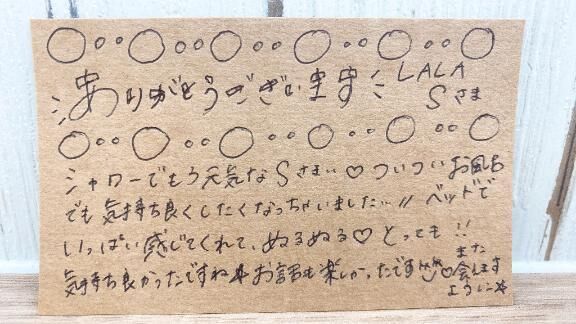 ありがとうございます LALA
Sさま
シャワーでもう元気なSさまい♡ついついお風呂
でも気持ち良くしたくなっちゃいました…〃ベッドで
いっぱい感じてくれて、ぬるぬる♡とっても!!
気持ち良かったですね☆お話も楽しかったです♡
また
会えます
ように☆